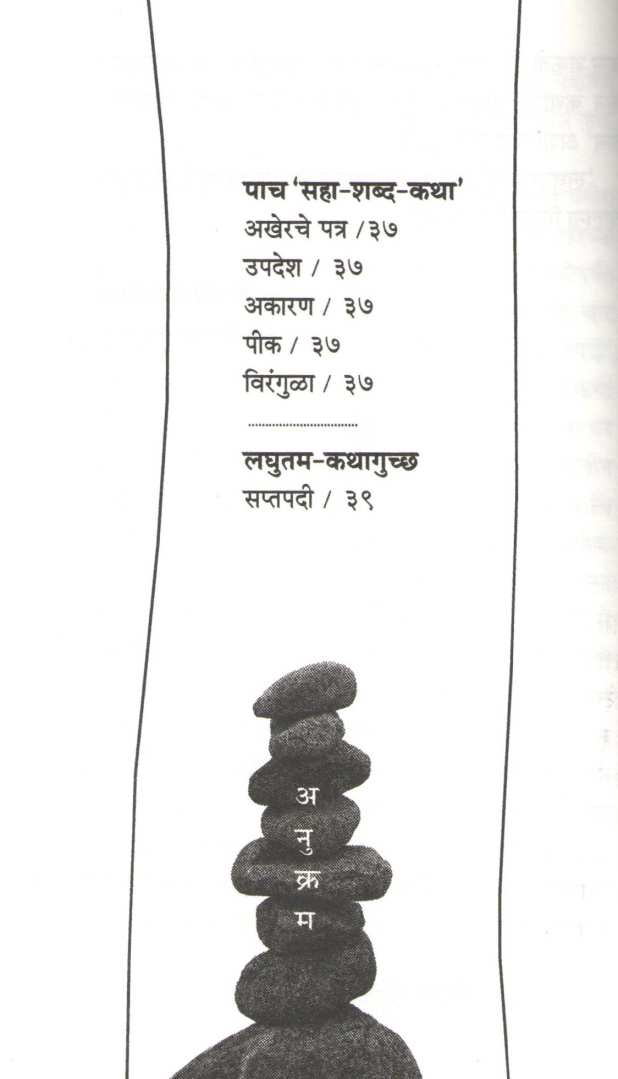 पाच ‘सहा-शब्द-कथा’
अखेरचे पत्र /३७
उपदेश / ३७
अकारण / ३७
पीक / ३७
विरंगुळा / ३७
लघुतम-कथागुच्छ
सप्तपदी / ३९
अ
नु
क्र
म